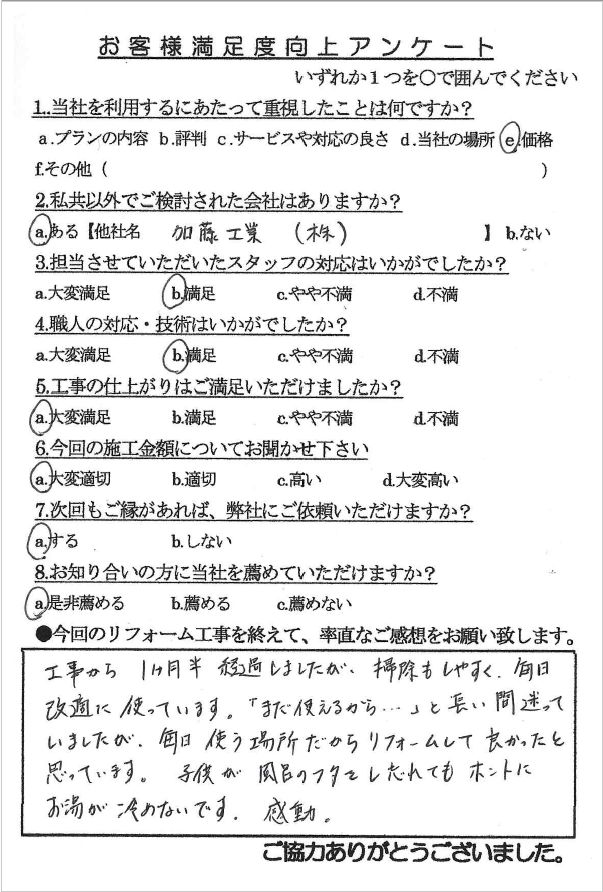 お客様満足度向上アンケート
いずれか１つを○で囲んでください
1..当社を利用するにあたって重視したことは何ですか？
a.プランの内容 b.評判 c.サービスや対応の良さ d.当社の場所 e.価格
f.その他（ ）
2.私共以外でご検討された会社はありますか？
a.ある【他社名 加藤工業（株） 】 b.ない
3.担当させていただいたスタッフの対応はいかがでしたか？
a.大変満足 b.満足 c.やや不満 d.不満
4.職人の対応・技術はいかがでしたか？
a.大変満足 b.満足 c.やや不満 d.不満
5.工事の仕上がりはご満足いただけましたか？
a.大変満足 b.満足 c.やや不満 d.不満
6.今回の施工金額についてお聞かせ下さい
a.大変適切 b.適切 c.高い d.大変高い
7.次回もご縁があれば、弊社にご依頼いただけますか？
a.する b.しない
8.お知り合いの方に当社を薦めていただけますか？
a.是非薦める b.薦める c.薦めない
●今回のリフォーム工事を終えて、率直なご感想をお願い致します。
工事から 1ヶ月半 経過しましたが、掃除もしやすく、毎日
適に使っています。「まだ使えるから…」と長い間迷って
いましたが、毎日使う場所だからリフォームして良かったと
思っています。 子供が 風呂のフタをし忘れても ホントに
お湯が 冷めないです。 感動。
ご協力ありがとうございました。